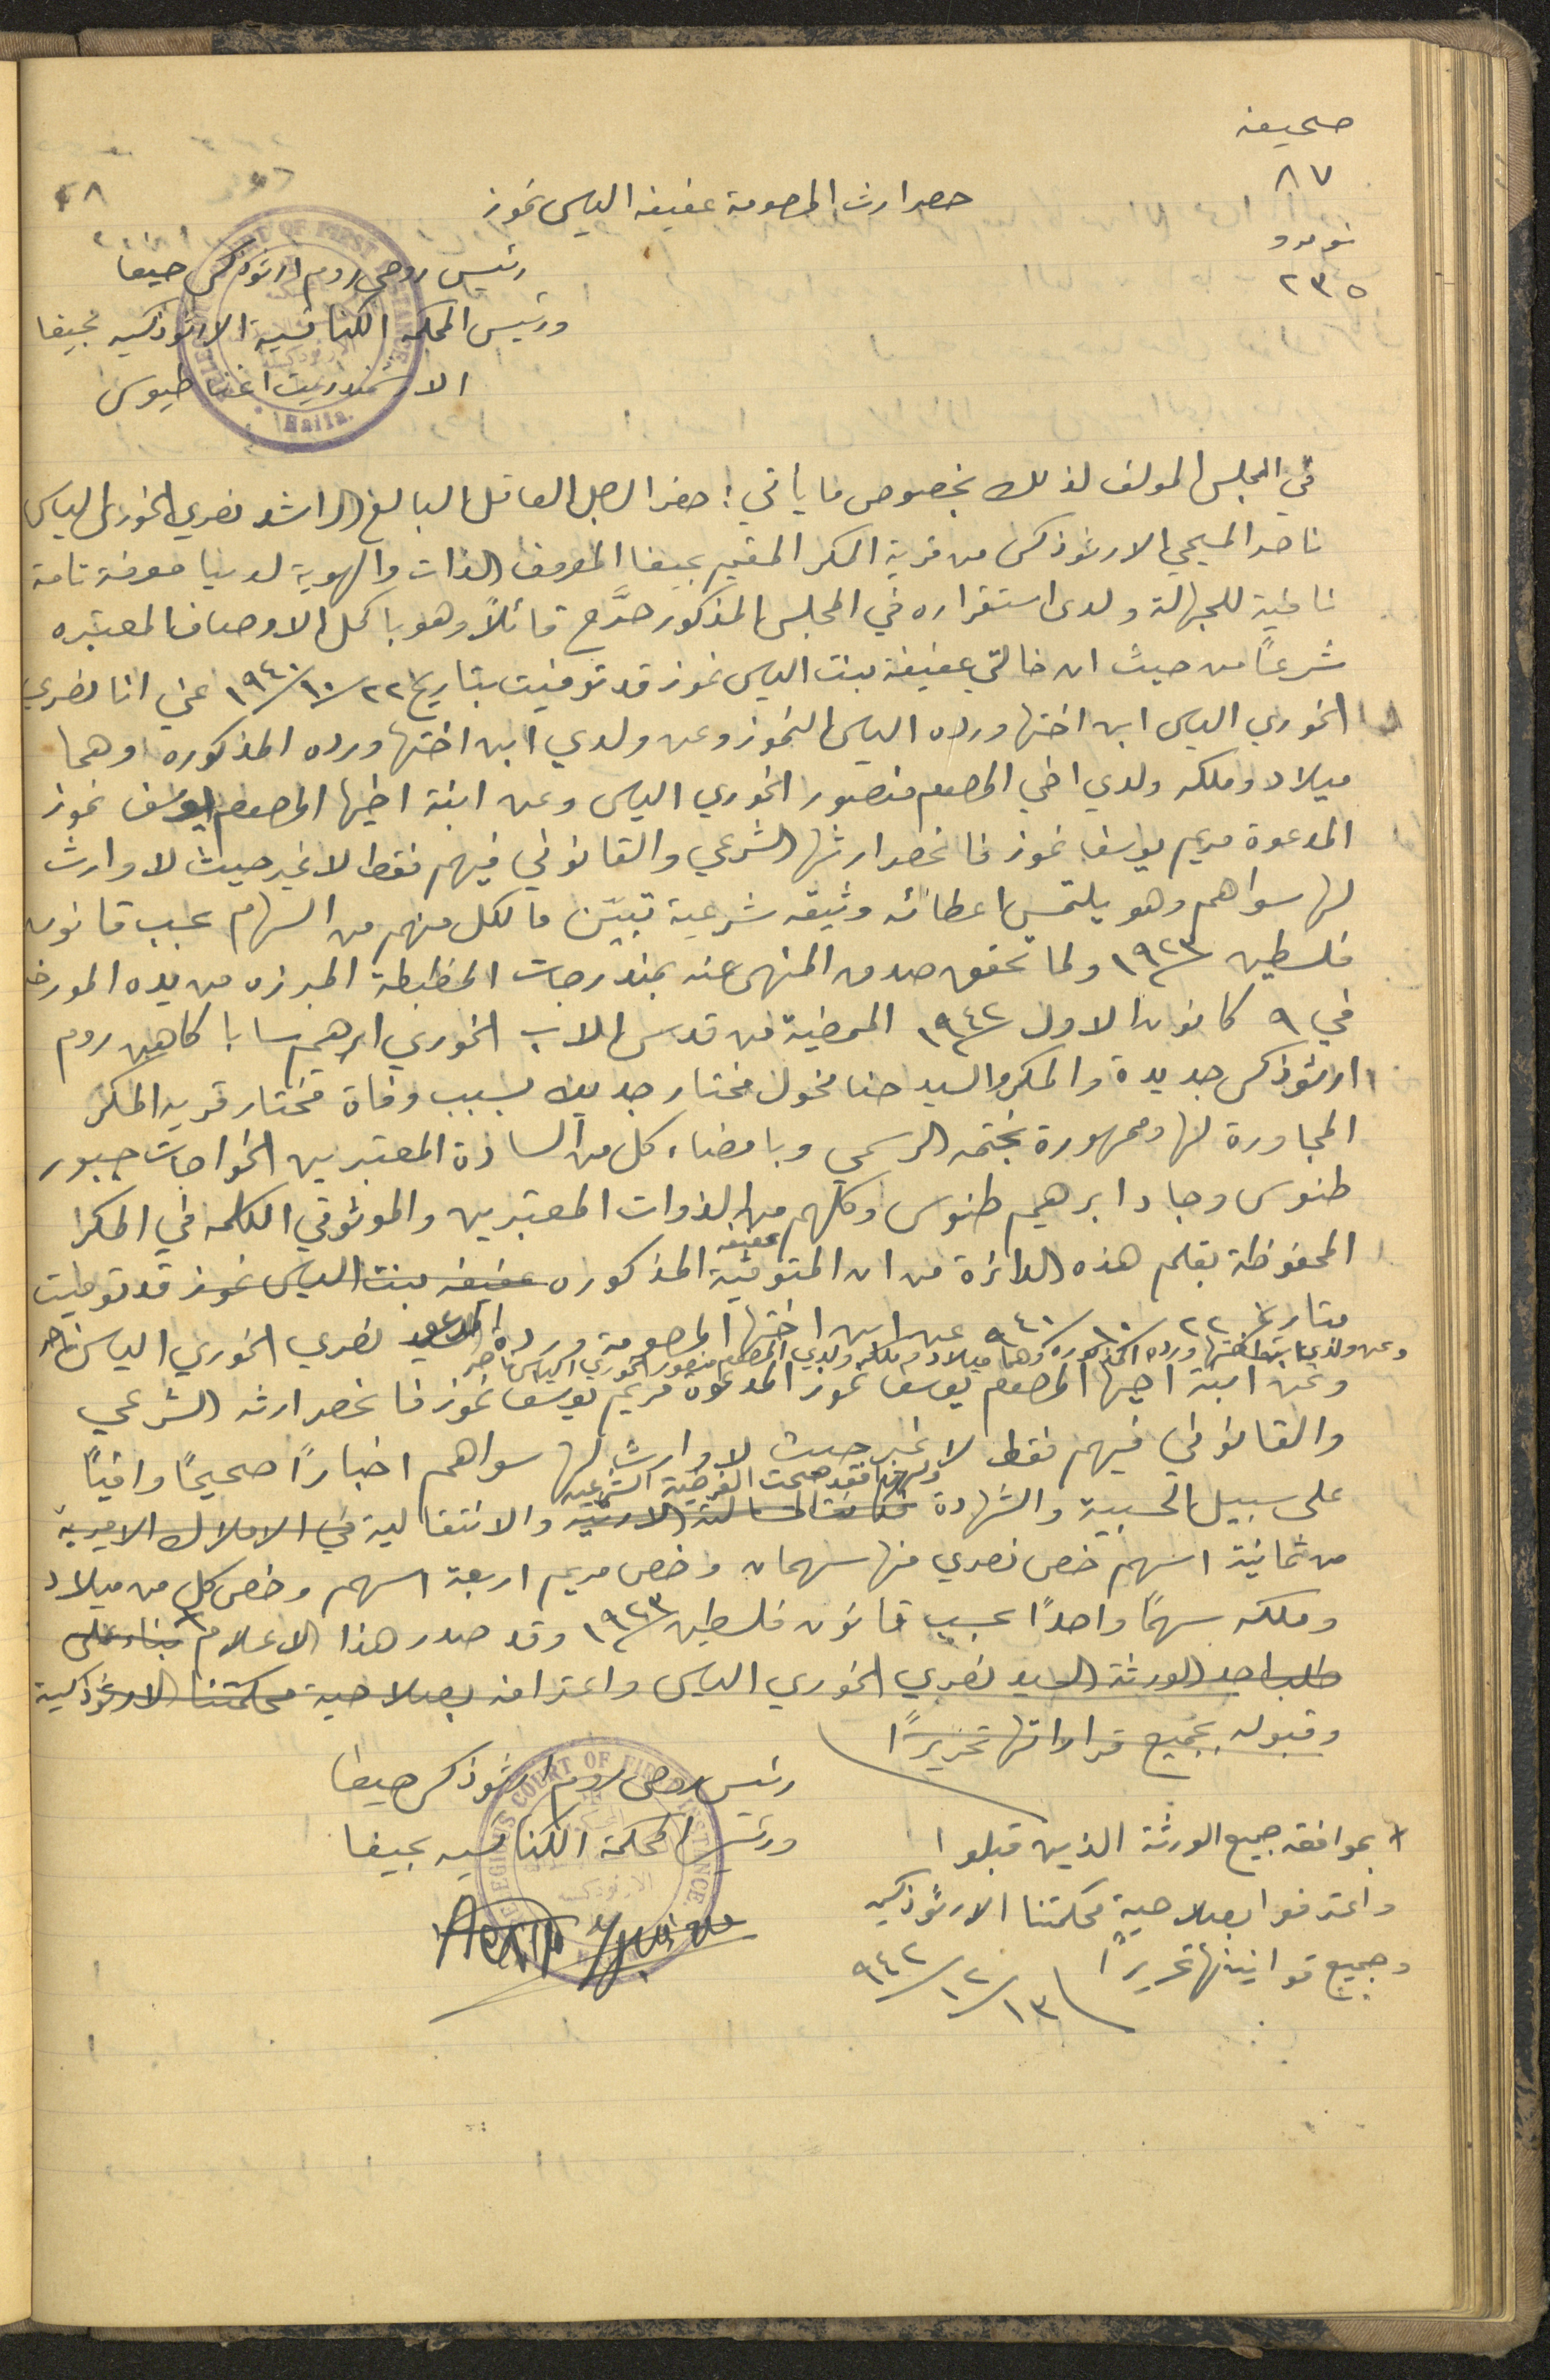 صحيفه
٨٧
نومرو
٢٣٥
حصر ارث المرحومة عفيفه الياس نموز
رئيس روحي روم ارثوذكس حيفا
ورئيس المحكمه الكنائسية الارثوذكسيه بحيفا
الارشمندريت اغناطيوس
في المجلس المولف لذلك بخصوص ما يأتي: حضر الرجل العاقل البالغ الراشد نصري الخوري الياس
ناصر المسيحي الارثوذكس من قرية المكر المقيم بحيفا المعروف الذات والهوية لدينا معرفة تامة
نافية للجهالة ولدى استقراره في المجلس المذكور صرَّح قائلاً وهو باكمل الاوصاف المعتبره
شرعاً من حيث ان خالتي عفيفة بنت الياس نموز قد توفيت بتاريخ ٢٢/١٠/١٩٤٠ عني انا نصري
الخوري الياس ابن اختها ورده الياس النموز وعن ولدي ابن اختها ورده المذكوره وهما
ميلاد وملكه ولدي اخي المرحوم منصور الخوري الياس وعن ابنة اخيها المرحوم يوسف نموز
المدعوة مريم يوسف نموز فانحصر ارثها الشرعي والقانوني فيهم فقط لا غير حيث لا وارث
لها سواهم وهو يلتمس اعطائه وثيقه شرعية تبيّن ما لكل منهم من السهام بحسب قانون
فلسطين ١٩٢٣ ولما تحقق صدق المنهى عنه بمندرجات المظبطة المبرزه من يده المورخه
في ٩ كانون الاول ١٩٤٢ الممضية من قدس الاب الخوري ابرهيم سابا كاهن روم
ارثوذكس جديدة والمكر والسيد حنا مخول مختار جديده بسبب وفاة مختار قريه المكر
المجاورة لها وممهورة بختمه الرسمي وبامضاء كل من السادة المعتبرين الخواجات جبور
طنوس وجاد ابرهيم طنوس وكلهم من الذوات المعتبرين والموثوقي الكلمه في المكر
عفيفه
المحفوظة بقلم هذه الدائرة من ان المتوفية المذكوره عفيفه بنت الياس نموز قد توفيت
بتاريخ ٢٢/١٠/٩٤٠ عن ابن اختها المرحومة ورده المدعو نصري الخوري الياس ناصر
وعن ولدي ابن اختها ورده المذكوره وهما ميلاد وملكه ولدي المرحوم منصور الخوري الياس ناصر
وعن ابنة اخيها المرحوم يوسف نموز المدعوة مريم يوسف نموز فانحصر ارثه الشرعي
والقانوني فيهم فقط لا غير حيث لا وارث لها سواهم اخباراً صحيحاً وافياً
ولهذا فقد صحت الفرضية الشرعيه
على سبيل الحسبية والشهادة المسالة الارثية والانتقالية في الاملاك الاميرية
من ثمانية اسهم خص نصري منها سهمان وخص مريم اربعة اسهم وخص كل من ميلاد
وملكه سهماً واحداً بحسب قانون فلسطين ١٩٢٣ وقد صدر هذا الاعلام x بناء على
طلب احد الورثة السيد نصري الخوري الياس واعترافه بصلاحية محكمتنا الارثوذكسية
وقبوله بجميع قراراتها تحريراً
رئيس روحي روم ارثوذكس حيفا
ورئيس المحكمة الكنائسيه بحيفا
x بموافقه جميع الورثة الذين قبلوا
واعترفوا بصلاحية محكمتنا الارثوذكسيه
وجميع قوانينها تحريراً
١٣/١٢/٩٤٢